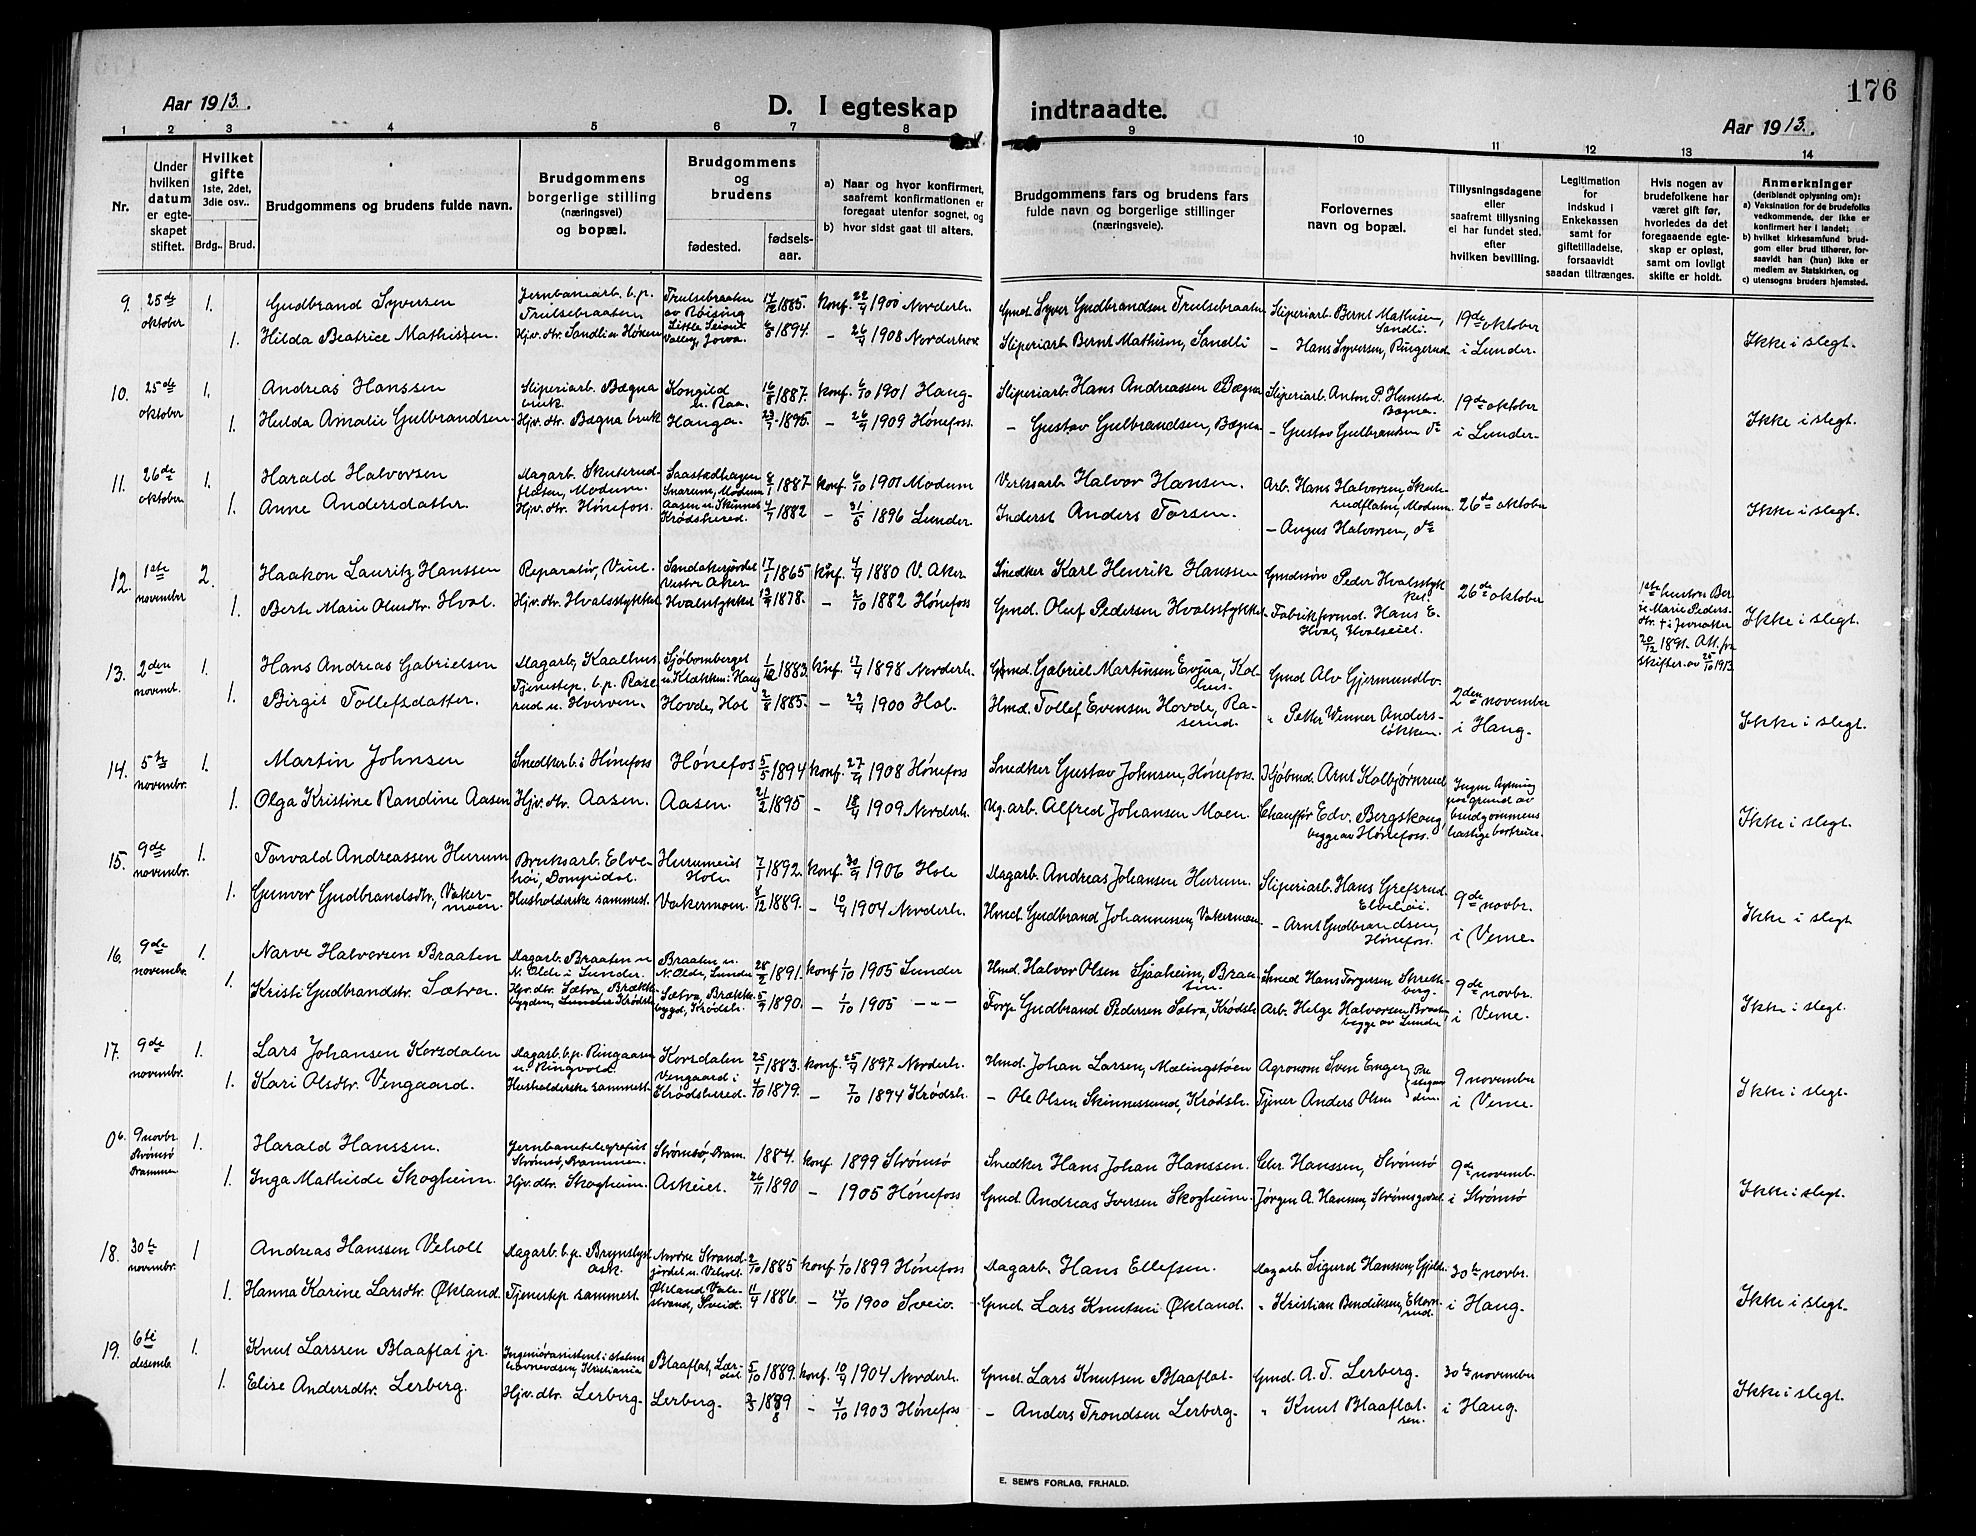 176
Aar 1913.
D. I egteskap indtraadte.
Aar 1913.
1 2 3 4 5 6 7 8 9 10 11 12 13 14
Nr.
Under hvilken datum er egteskapet stiftet.
Hvilket gifte 1ste, 2det, 3die osv..
Brdg.. Brud.
Brudgommens og brudens fulde navn.
Brudgommens borgerlige stilling (næringsvei) og bopæl.
Brudgommens og brudens
fødested.
fødselsaar.
a) Naar og hvor konfirmert, saafremt konfirmationen er foregaat utenfor sognet, og
b) hvor sidst gaat til alters.
Brudgommens fars og brudens fars fulde navn og borgerlige stillinger (næringsveie).
Forlovernes navn og bopæl.
Tillysningsdagene eller saafremt tillysning ei har fundet sted, efter hvilken bevilling.
Legitimation for indskud i Enkekassen samt for giftetilladelse, forsaavidt saadan tiltrænges.
Hvis nogen av brudefolkene har været gift før, hvorledes da det foregaaende egteskap er opløst, samt om lovligt skifte er holdt.
Anmerkninger (deriblandt oplysning om):
a) Vaksination for de brudefolks vedkommende, der ikke er konfirmert her i landet;
b) hvilket kirkesamfund brudgom eller brud tilhører, forsaavidt han (hun) ikke er medlem av Statskirken, og
c) utensogns bruders hjemsted.
9. 25de oktober 1. Gudbrand Syversen Jernbanearb. b.p. Trulsebraaten Trulsebraaten av Røising 17/12 1885. konf. 22/4 1900 Norderh. Gmd. Syver Gudbrandsen Trulsebraaten Sliperiarb. Bernt Mathisen, Sandli. 19de oktober
1. Hilda Beatrice Mathissen. Hjv. dtr. Sandli Hønen Little Seioux Valley, Jowa. 6/8 1894. – 26/4 1908 Norderhov Sliperiarb. Bernt Mathisen, Sandli – Hans Syversen, Ringerud i Lunder. Ikke i slegt.
10. 25de oktober 1. Andreas Hanssen Sliperiarb. Bægna bruk Kongild u. Raa. 16/8 1887. konf. 6/10 1901 Haug. Sliperiarb. Hans Andreassen Bægna Sliperiarb. Anton P. Hunstad Bægna. 19de oktober
1. Hulda Amalie Gulbrandsen. Hjv. dtr. Bægna bruk Hauga. 23/7 1895. – 26/9 1909 Hönefoss. – Gustav Gulbrandsen, Bægna – Gustav Gulbrandsen do i Lunder. Ikke i slegt.
11. 26de oktober 1. Harald Halvorsen Dagarb. Skuterudflaten, Modum. Saastadhagen Snarum, Modum 8/1 1887 konf. 6/10 1901 Modum Verksarb. Halvor Hansen. Arb. Hans Halvorsen, Skuterudflaten, Modum. 26de oktober
1. Anne Andersdatter. Hjv. dtr. Hönefoss. Aasen u. Skinnes Krødsherred. 4/7 1882 – 31/5 1896 Lunder. Inderst Anders Torsen. – August Halvorsen, do Ikke i slegt.
12. 1ste november 2. Haakon Lauritz Hanssen Reparatör, Viul. Sandakerjordet Vestre Aker 17/1 1865 konf. 4/4 1880 V. Aker Snedker Karl Henrik Hanssen Gmdssøn Peder Hvalsstykket. 26de oktober
1. Berte Marie Olusdtr. Hval. Hjv. dtr. Hvalsstykket Hvalsstykket 13/9 1878. – 2/10 1882 Hönefoss Gmd. Oluf Pedersen Hvalsstykket – Fabrikformd. Hans E. Hval, Hvalseiet. 1ste hustru Berte Marie Pedersdtr. † i Jevnaker 20/12 1891. Att. fra skifter. av 25/10 1913. Ikke i slegt.
13. 2den novemb. 1. Hans Andreas Gabrielsen Dagarb, Kaalhus Sjöbomberget u. Klækken i Haug 1/12 1883. konf. 17/4 1898 Norderh. Gmd. Gabriel Martinsen Evjua, Kolhus. Gmd Alv Gjermundbo. 2den november
1. Birgit Tollefsdatter. Tjenestep. b.p. Raserud u. Hverven. Hovde, Hol 2/8 1885. – 29/4 1900 Hol. Hmd. Tollef Evensen Hovde, Raserud. " Petter Wenner Andersløkken. i Haug. Ikke i slegt.
14. 5te novembr. 1. Martin Johnsen Snedker b. i Hönefoss Hönefoss 5/5 1894 konf. 27/9 1908 Hönefoss Snedker Gustav Johnsen, Hönefoss. Kjøbmd. Arnt Kolbjørnrud Ingen lysning paa grund av brudgommens hastige bortreise.
1. Olga Kristine Randine Aasen Hjv. dtr. Aasen. Aasen. 21/2 1895 – 18/4 1909 Norderh. Ug. arb. Alfred Johansen Moen. Chauffør Edv. Bergskaug, begge av Hönefoss. Ikke i slegt.
15. 9de novembr. 1. Torvald Andreassen Hurum Bruksarb. Elvehøi, Dompidal. Hurumeiet Hole 7/1 1892. konf. 30/9 1906 Hole Dagarb. Andreas Johansen Hurum. Sliperiarb. Hans Grefsrud Elvehøi. 9de novbr.
1. Gunvor Gudbrandsdtr, Vakermoen. Husholderske sammest. Vakermoen. 8/12 1889. – 10/4 1904 Norderh. Hmd. Gudbrand Johannessen, Vakermoen – Arnt Gudbrandsen, Hönefoss. i Veme. Ikke i slegt
16. 9de novembr. 1. Narve Halvorsen Braaten Dagarb. Braaten u N. Olde i Lunder. Braaten u. N. Olde, Lunder 28/2 1891. konf 1/10 1905 Lunder Hmd. Halvor Olsen Sjaaheim, Braaten. Smed Hans Torgersen Skrettberg. 9de novbr.
1. Kristi Gudbrandsdtr. Sætra. Hjv. dtr. Sætra, Brækkebygden, Lunner i Krødsh. Sætra, Brækkebygd, Krødsh. 5/9 1890. – 1/10 1905 – – – Torge Gudbrand Pedersen Sætra, Krødsh. Arb. Helge Halvorsen Braaten begge av Lunder. i Veme. Ikke i slegt.
17. 9de novembr. 1. Lars Johansen Korsdalen Dagarb. b.p. Ringaasen u. Ringvold. Korsdalen 25/1 1883. konf. 25/4 1897 Norderh. Hmd. Johan Larsen, Mælingstøen Agronom Sven Enger } Prestegaarden. 9 november
1. Kari Olsdtr. Vengaard. Husholderske sammest. Vengaard i Krødsherred. 4/10 1879. – 7/10 1894 Krødsh. – Ole Olsen Skinnessund, Krødsh. Tjener Anders Olsen i Veme. Ikke i slegt.
0 b. 9 novbr. Strømsø Drammen 1. Harald Hanssen. Jernbanetelegrafist Strømsø, Drammen. Strømsø, Dram. 1884. konf 1899 Strømsø Snedker Hans Johan Hanssen. Chr. Hanssen, Strømsø 9de novemb.
1. Inga Mathilde Skogheim. Hjv. dtr. Skogheim. Askeiet. 26/11 1890 – 1905 Hönefoss Gmd. Andreas Iversen Skogheim Jørgen A. Hansen, Strømsgodset. i Strømsø Ikke i slegt.
18. 30te novembr. 1 Andreas Hanssen Veholt Dagarb. b.p. Brynslyst Ask. Nordre Strandjordet u. Veholt. 2/10 1885 konf. 1/10 1899 Hönefoss Dagarb. Hans Ellefsen. Dagarb. Sigurd Hanssen, 30te novbr.
1. Hanna Karine Larsdtr. Økland. Tjenestep. sammest. Økland Valestrand, Sveio. 11/9 1886. – 14/10 1900 Sveio. Gmd. Lars Knutsen Økland. " Kristian Bendiksen, Ekornrud. i Haug. Ikke i slegt.
19. 6te desemb. 1. Knut Larssen Blaaflat jr. Ingeniørassistent i statens havnevæsen, Kristiania Blaaflat, Lærdal. 5/10 1889. konf. 10/4 1904 Norderh. Gmd. Lars Knutsen Blaaflat. Gmd. A. T. Lerberg. 30te november
1. Elise Andersdtr. Lerberg. Hjv. dtr. Lerberg. Lerberg. 3/3 1889 – 4/10 1903 Hönefoss – Anders Trondsen Lerberg. " Knut Blaaflat sen. i Haug. Ikke i slegt.
E. SEM'S FORLAG, FR.HALD.